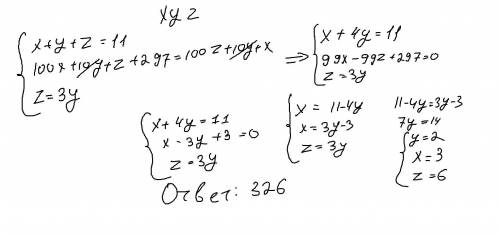 xyz
x+y+z=11
100x+10y+z+297=100z+10y+x
z=3y
⇒
x+4y=11
99x-99z+297=0
z=3y
x+4y=11
x-3y+3=0
z=3y
x=11-4y
x=3y-3
z=3y
11-4y=3y-3
7y=14
y=2
x=3
z=6
Ответ: 326